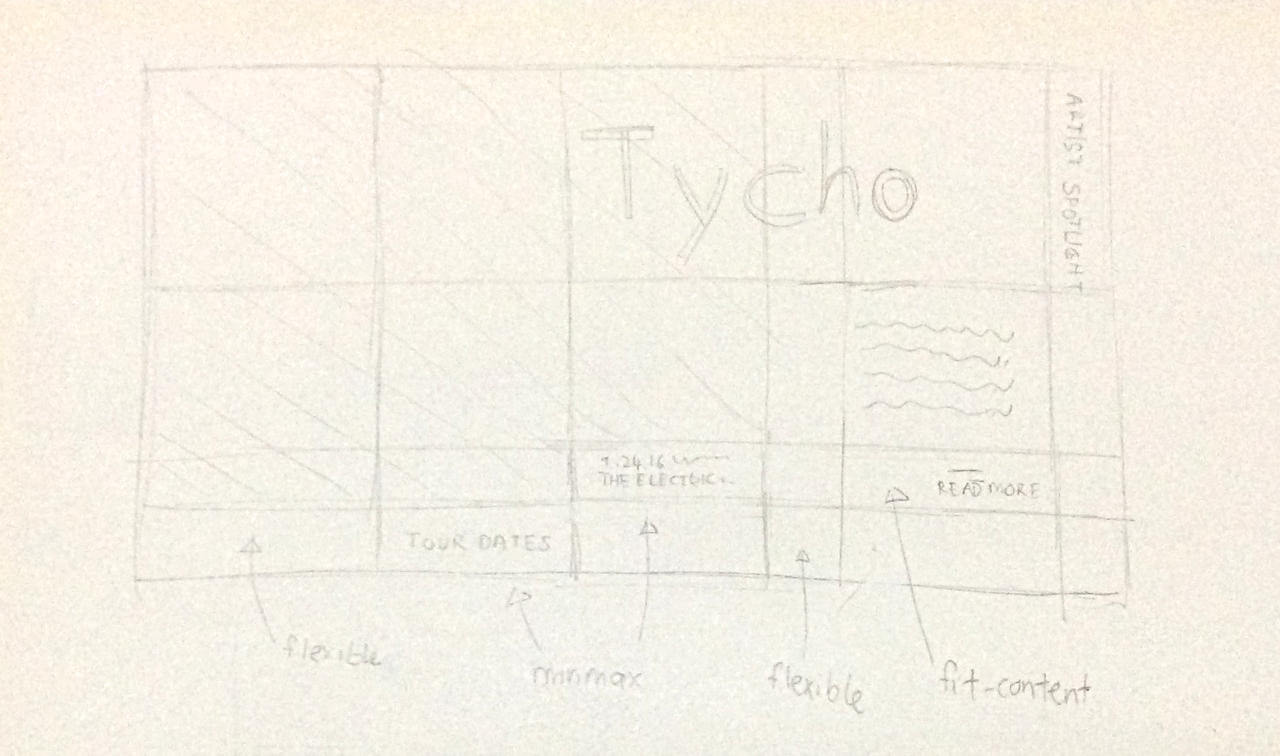 Tycho
ARTIST SPOTLIGHT
9.24.16
THE ELECTRIC.
READ MORE
TOUR DATES
flexible
minmax
flexible
fit-content